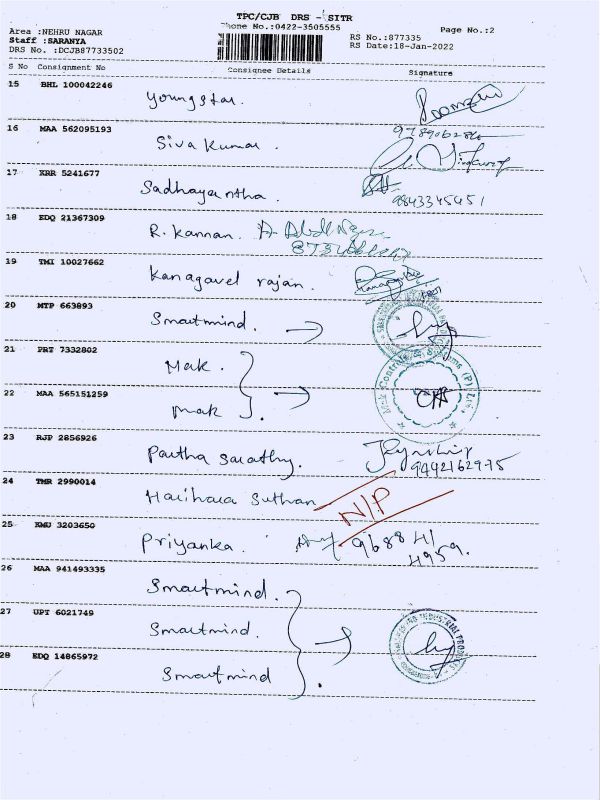 TPC/CJB DRS - SITR
Phone No.:0422-3505555
Page No.:2
Area :NEHRU NAGAR
Staff :SARANYA
DRS No. :DCJB87733502
RS No.:877335
RS Date:18-Jan-2022
S No Consignment No Consignee Details Signature
15 BHL 100042246 Youngstar.
16 MAA 562095193 Siva Kumar.
17 KRR 5241677 Sadhayantha.
9843345451
18 EDQ 21367309 R. Kannan.
19 TMI 10027662 Kanagavel rajan.
20 MTP 663893 Smartmind.
21 PRT 7332802 Mak.
22 MAA 565151259 Mak
23 RJP 2856926 Partha Sarathy.
9442162975
24 TMR 2990014 Harihara Suthan N/P
25 KMU 3203650 Priyanka. 96884/
4959.
26 MAA 941493335 Smartmind.
27 UPT 6021749 Smartmind.
28 EDQ 14865972 Smartmind